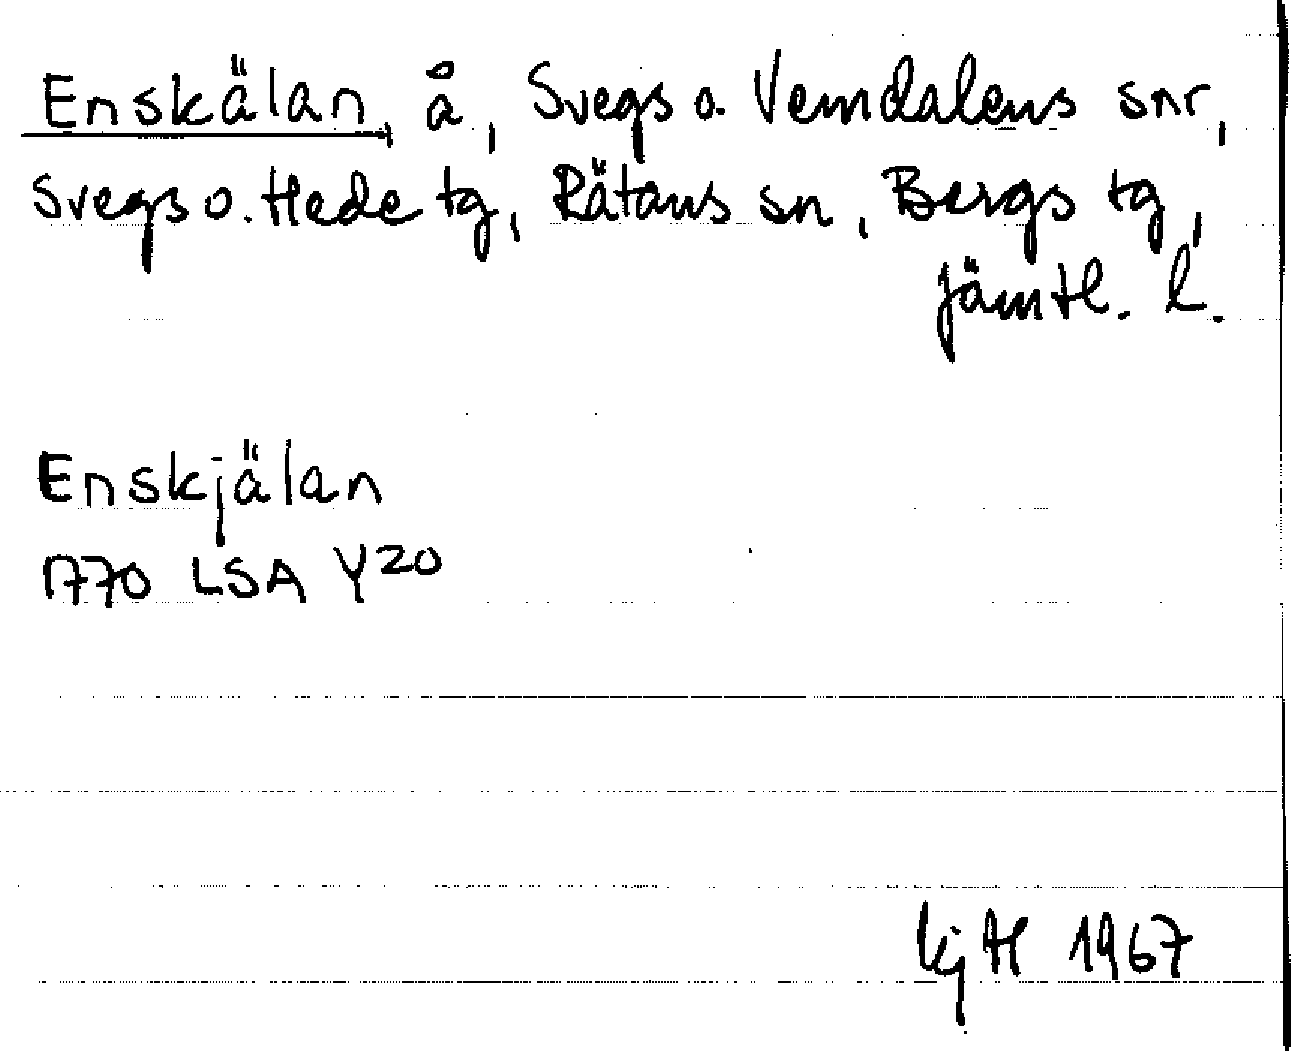 Enskälan, å, Svegs o. Vemdalens snr,
Svegs o. Hede tg, Rätans sn, Bergs tg,
Jämtl. l.
Enskjälan
1770 LSA Y20
1967